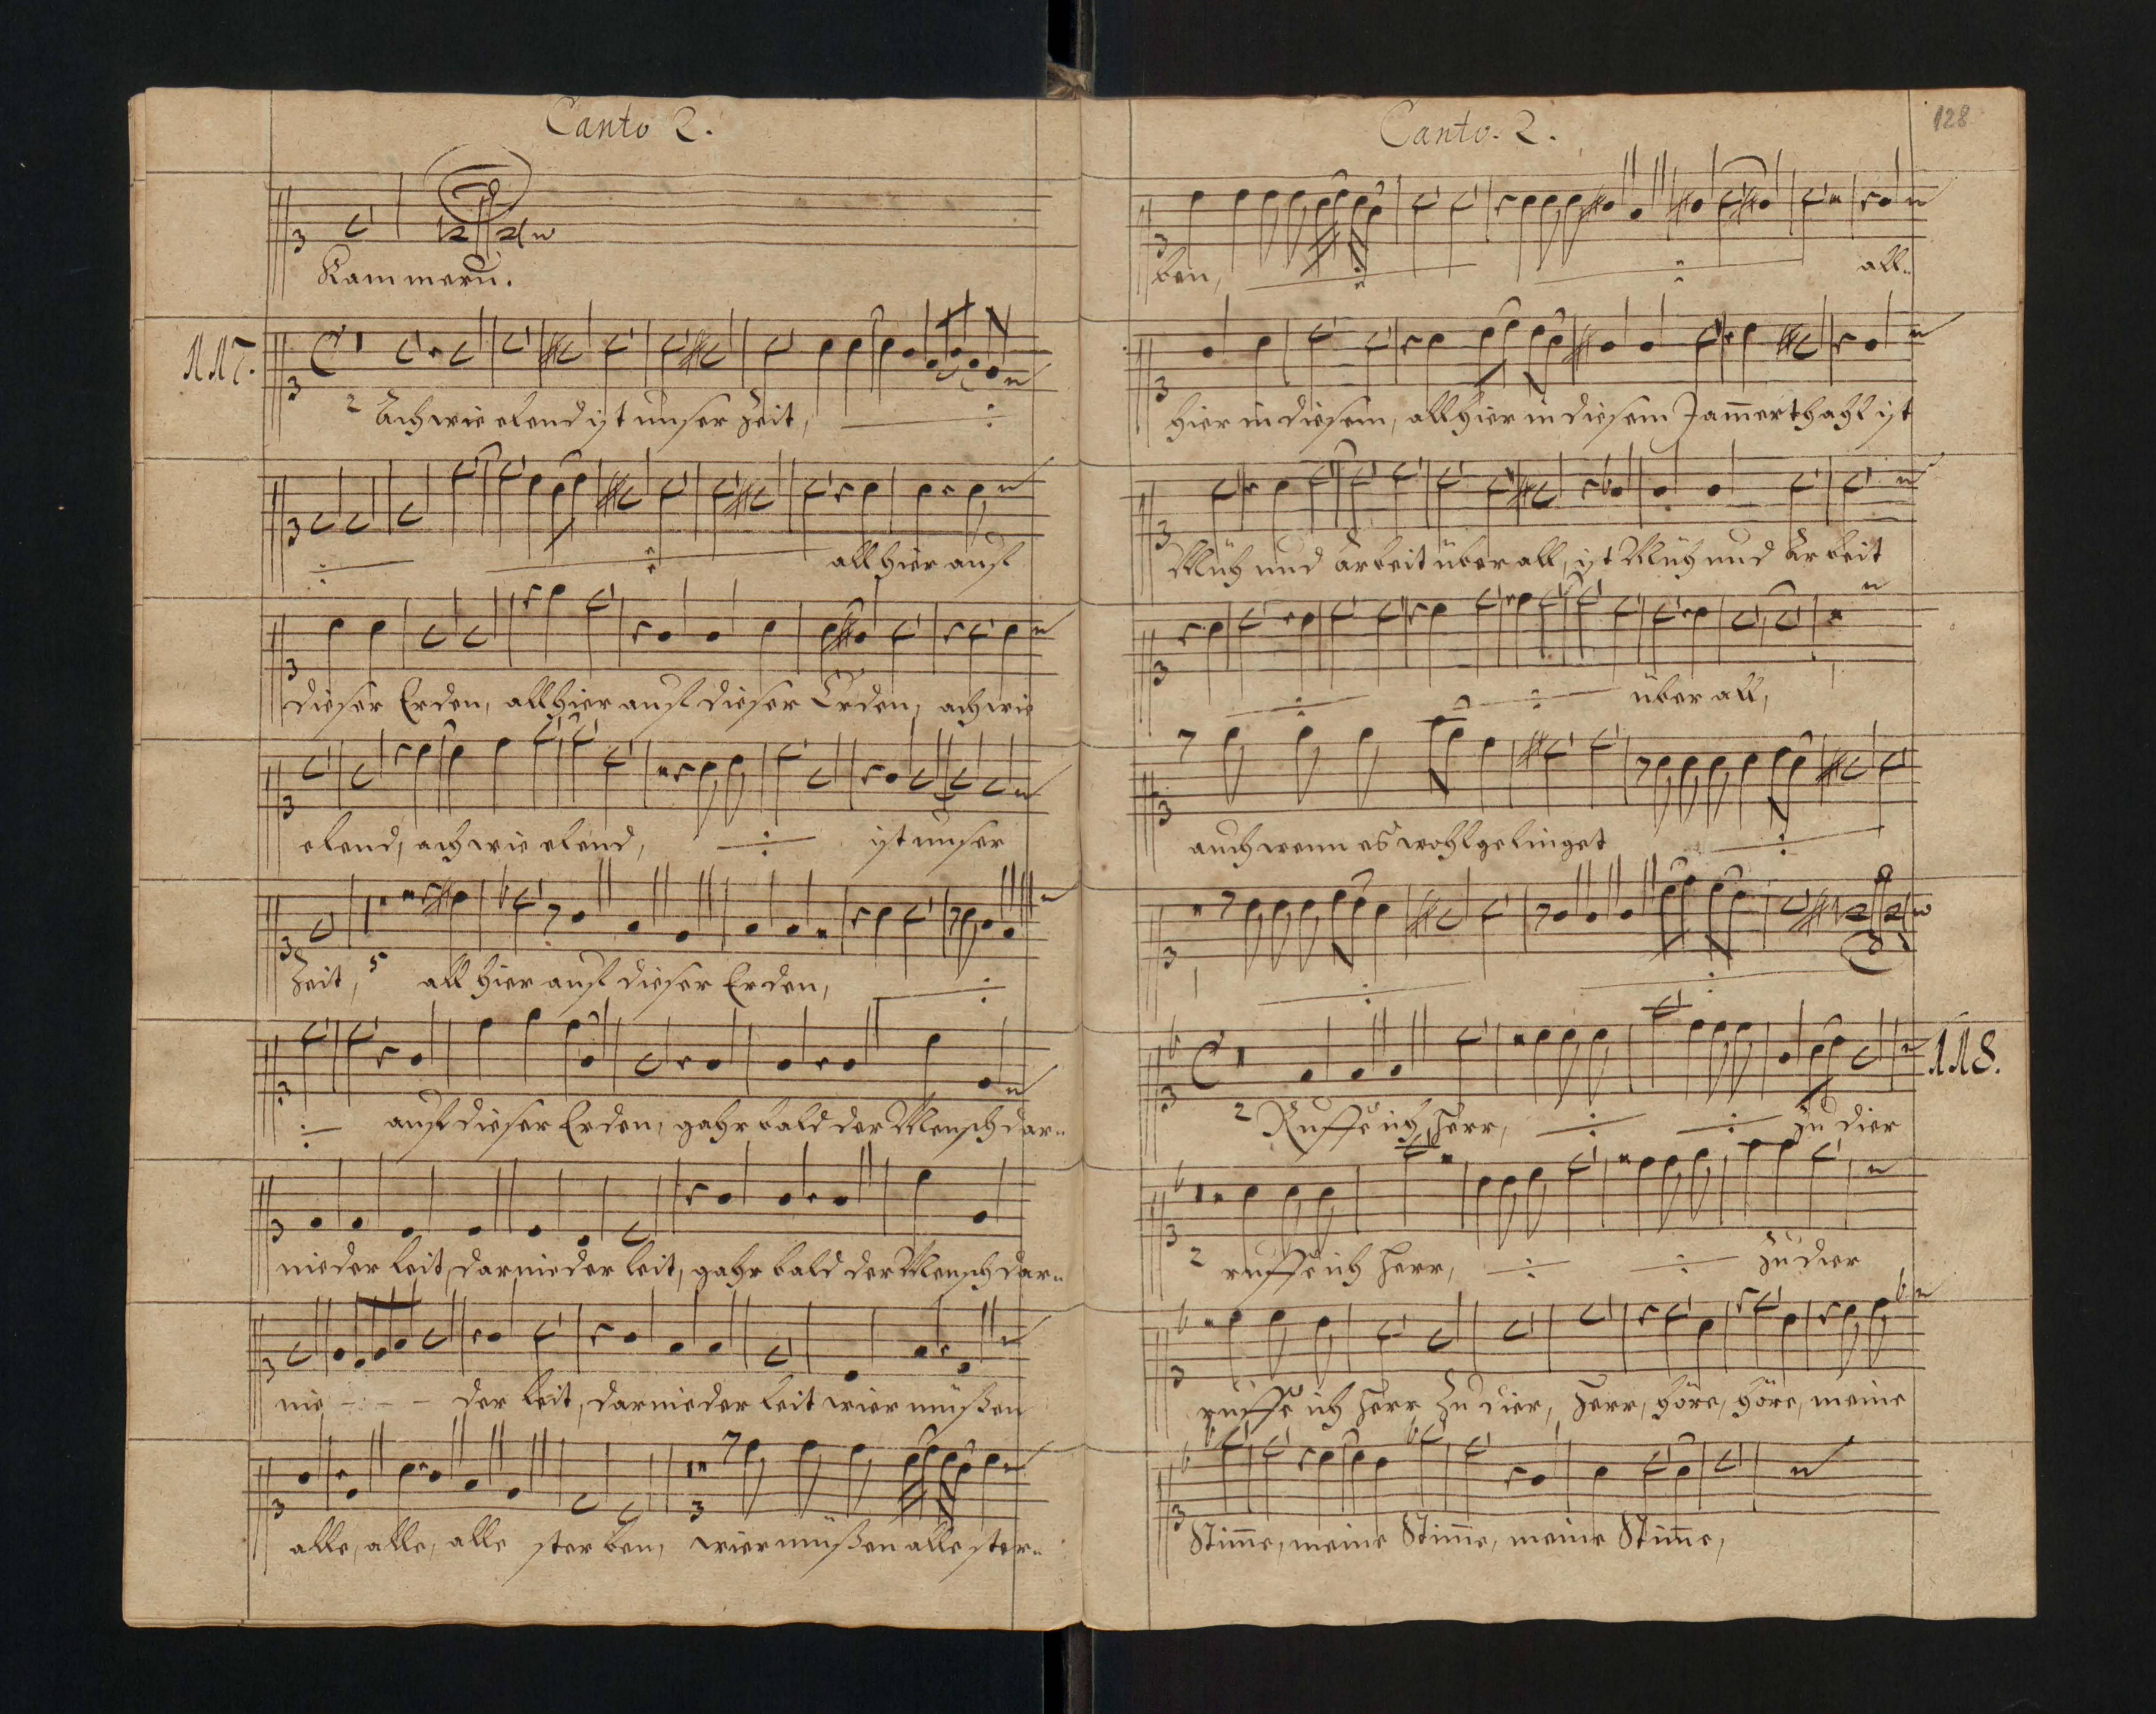 Canto 2.
Kammern.
117.
2 Ach wie elend ist unser Zeit,
allhier auf
dieser Erden, allhier auf dieser Erden, ach wie
elend, ach wie elend, ist unser
Zeit, 5 all hier auf dieser Erden,
auf dieser Erden, gahr bald der Mensch dar=
nieder leit, darnieder leit, gahr bald der Mensch dar=
nie - - - der leit, darnieder leit wier müßen
3
alle, alle, alle sterben, wier müßen alle ster=
Canto. 2.
128
ben, all=
hier in diesem, allhier in diesem Jam̅erthahl ist
Müh und Arbeit über all, ist Müh und Arbeit
über all,
auch wenn es wohlgelinget
118.
2 Ruffe ich Herr, zu dier
2 ruffe ich Herr, zu dier
ruffe ich Herr zu dier, Herr, höre, höre, meine
Stim̅e, meine Stim̅e, meine Stim̅e,